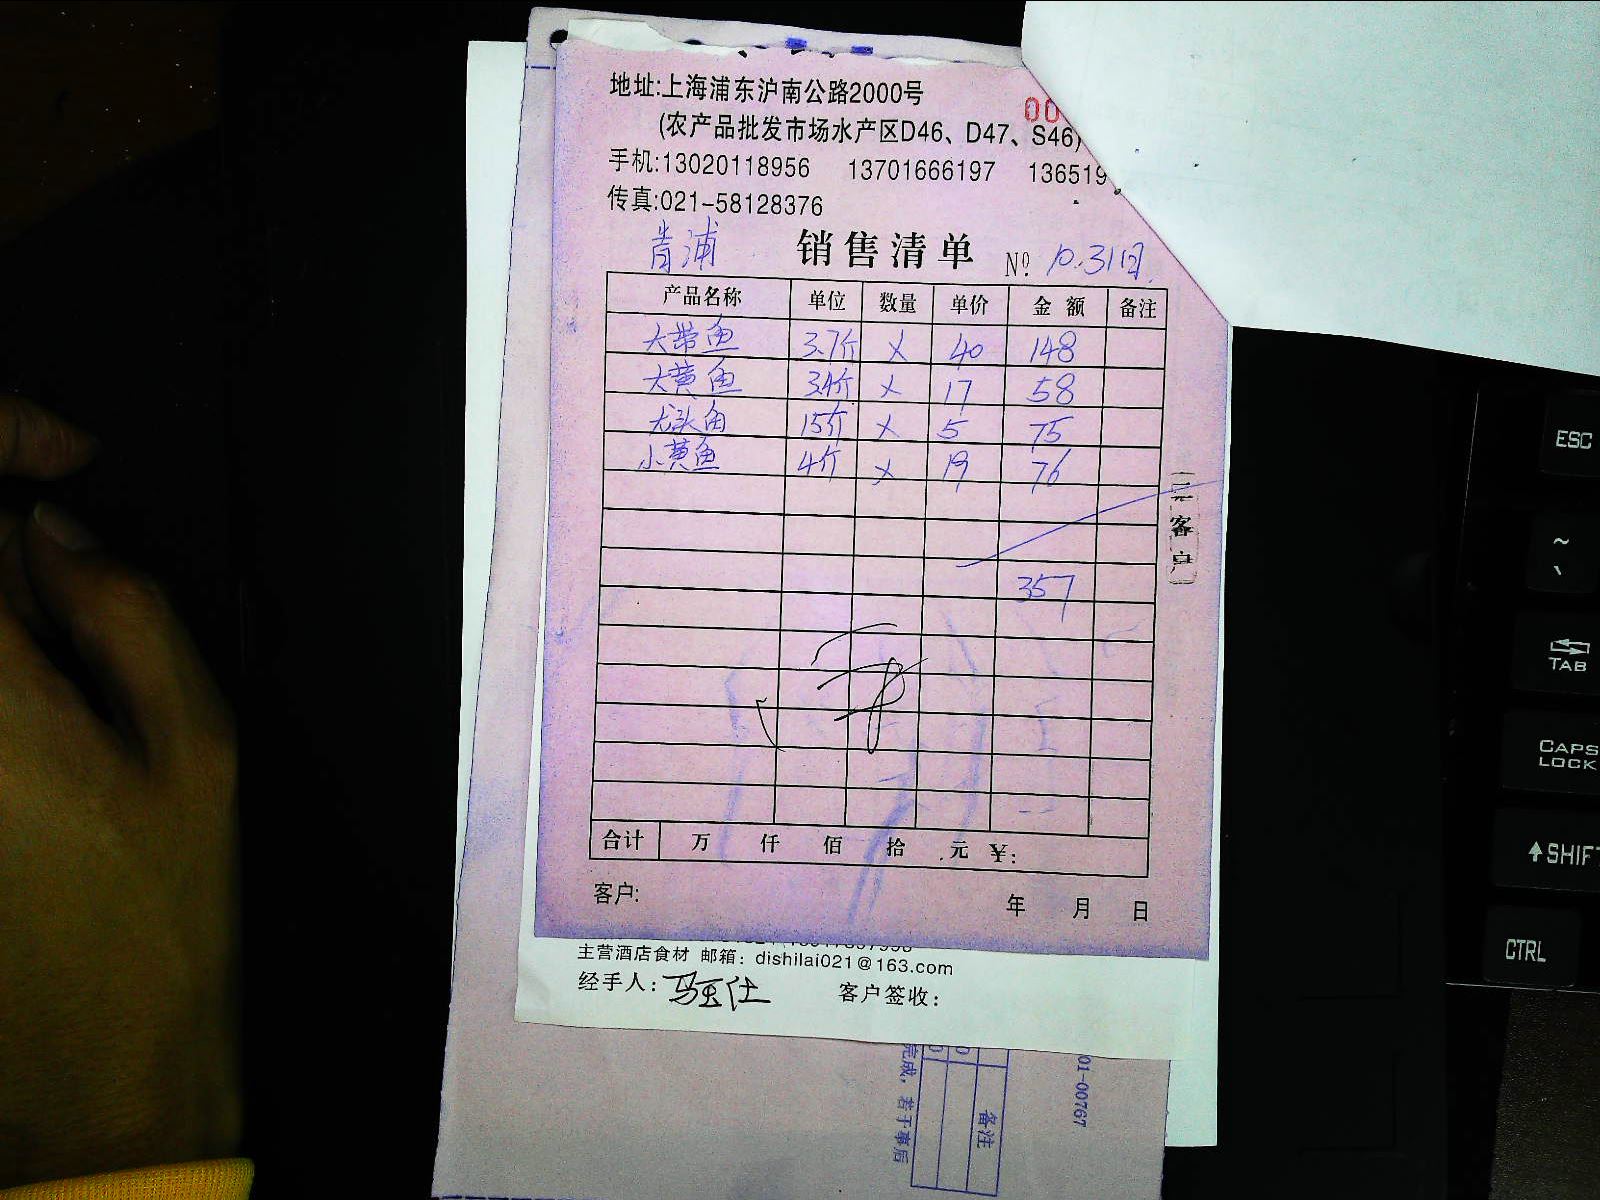 地址:上海浦东沪南公路2000号
00
(农产品批发市场水产区D46、D47、S46)
手机:13020118956 13701666197 136519
传真:021-58128376
青浦 销售清单 Nº 10.31日.
产品名称 单位 数量 单价 金额 备注
大带鱼 3.7斤 × 40 148
大黄鱼 3.4斤 × 17 58
龙头鱼 15斤 × 5 75
小黄鱼 4斤 × 19 76
357
二客户
合计 万 仟 佰 拾 元 ¥:
客户: 年 月 日
主营酒店食材 邮箱：dishilai021@163.com
经手人: 客户签收:
完成，若于事后
备注
01-00767
ESC
~
TAB
CAPS LOCK
SHIFT
CTRL